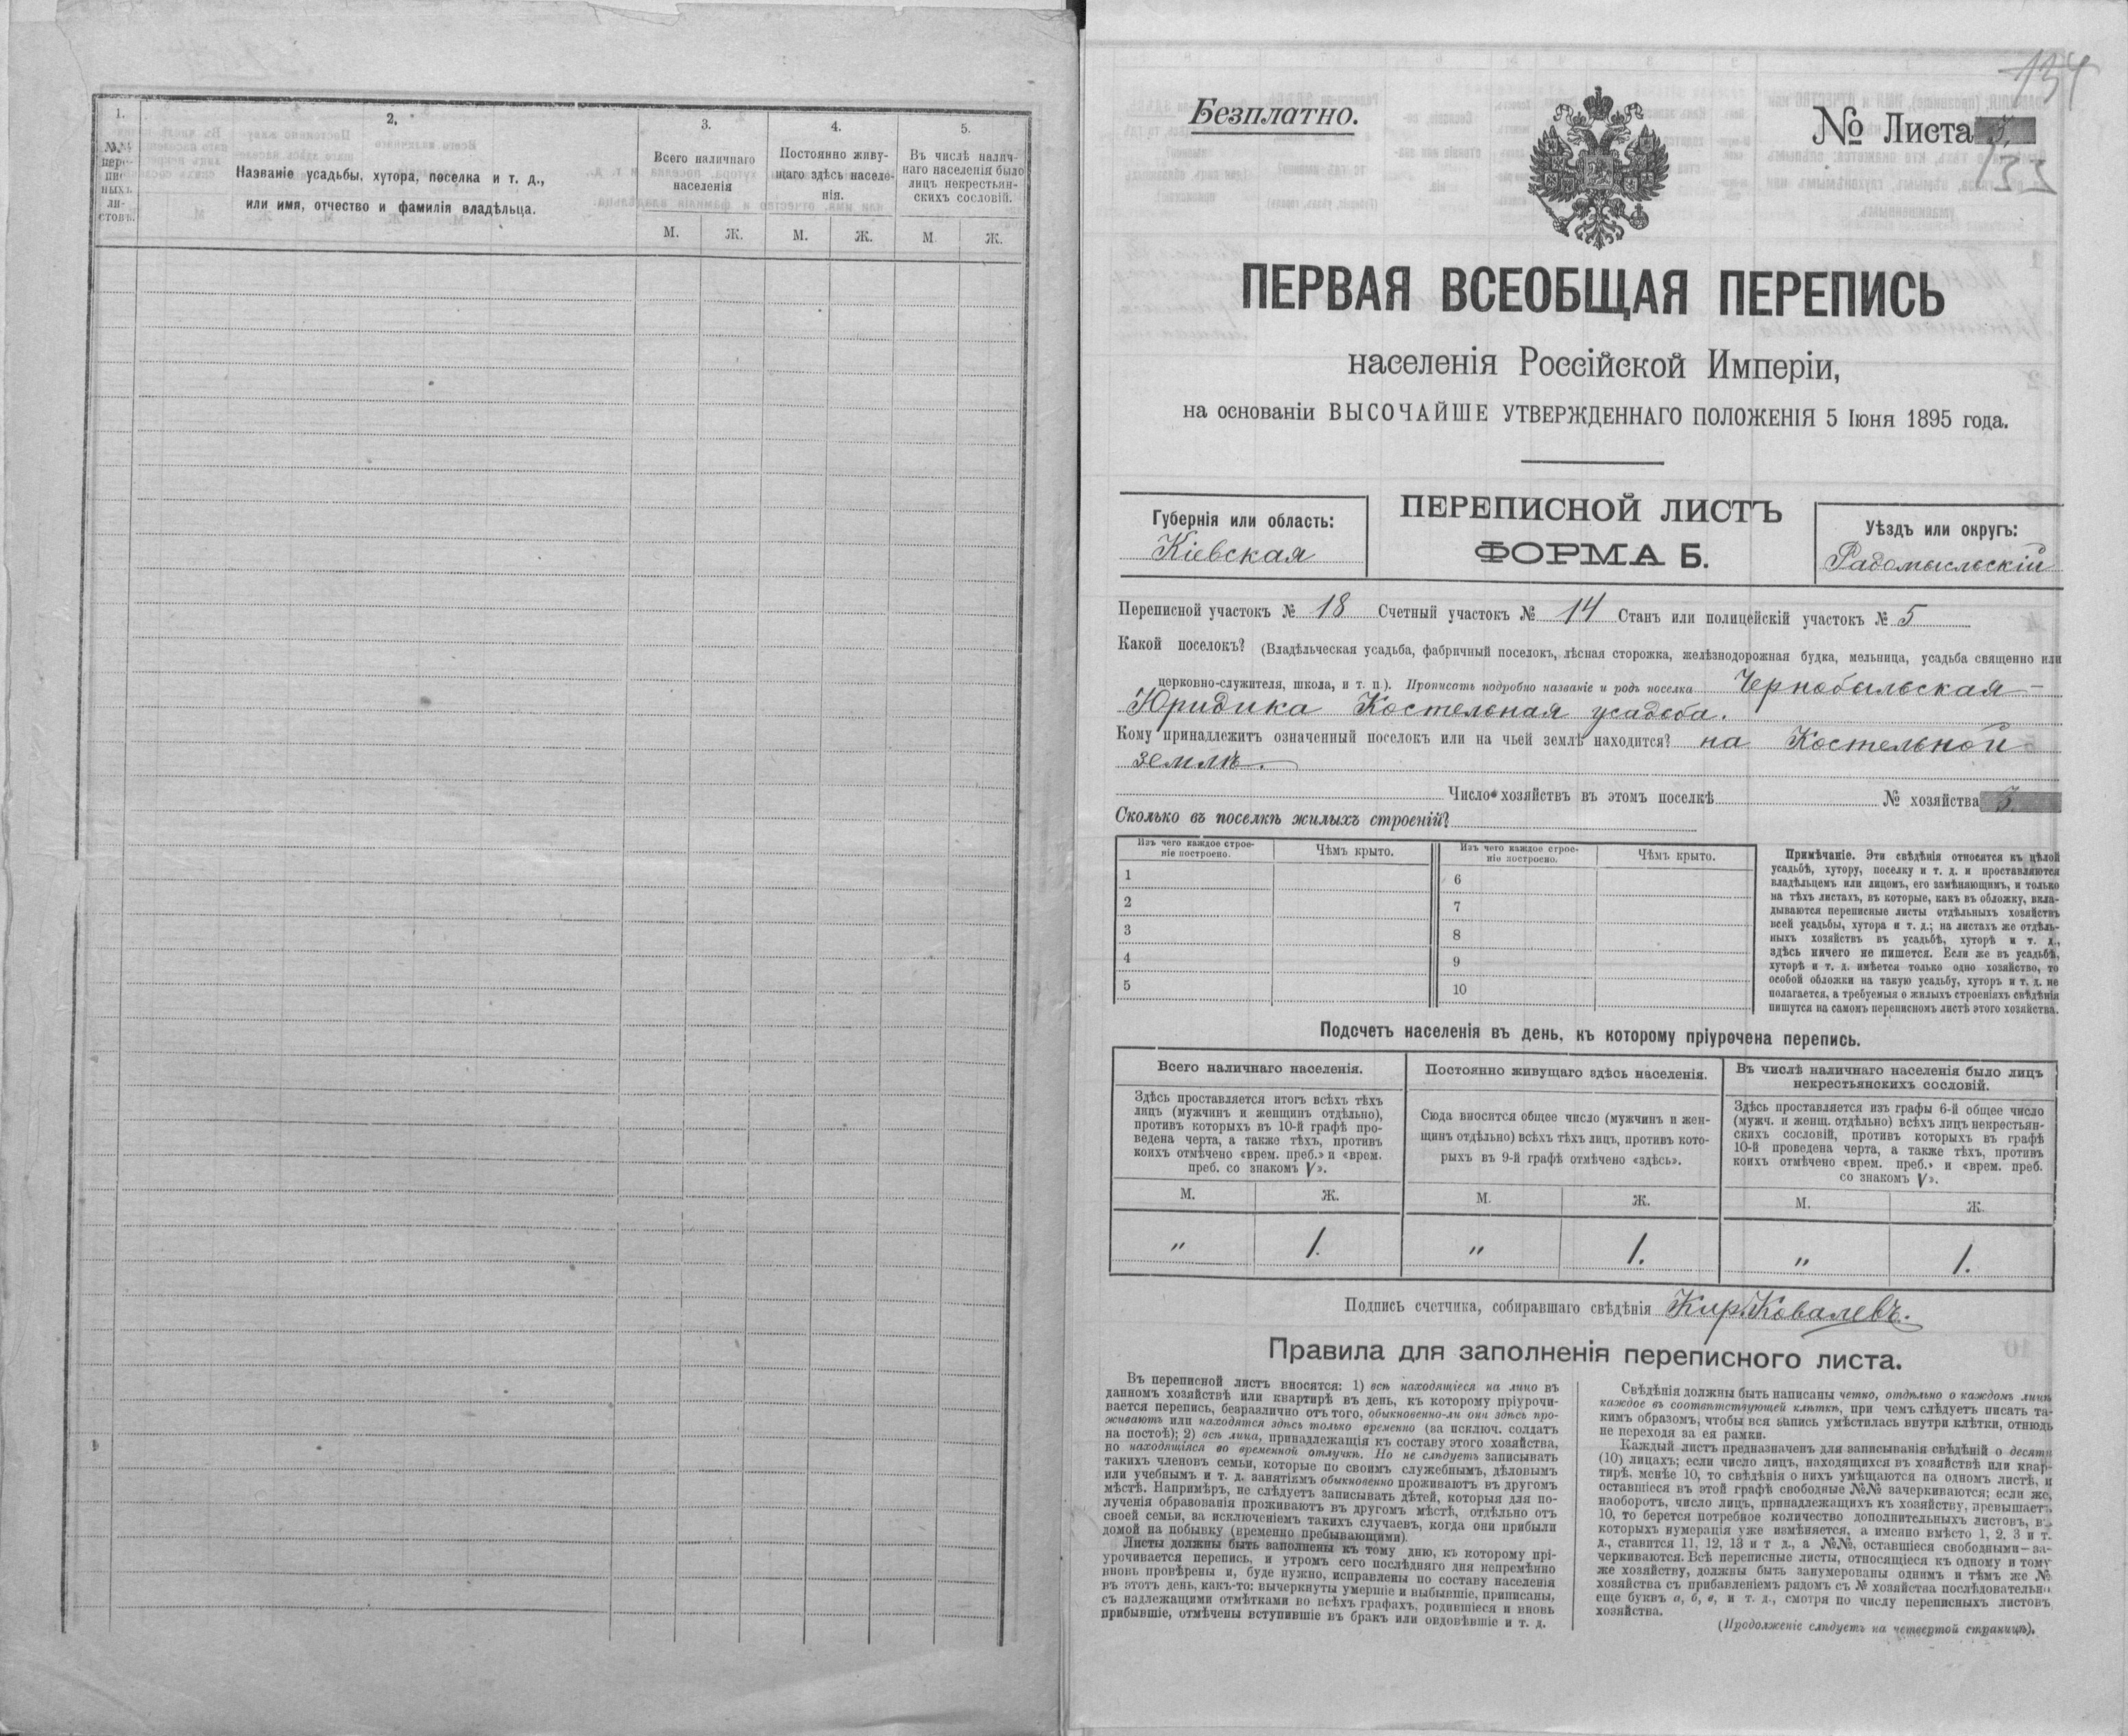 1.
2.
3.
4.
5.
№№
пере-
пис-
ныхъ
ли-
стовъ.
Названіе усадьбы, хутора, поселка и т. д.,
или имя, отчество и фамилія владѣльца.
Всего наличнаго
населенія
Постоянно живу-
щаго здѣсь населе-
нія.
Въ числѣ налич-
наго населенія было
лицъ некрестьян-
скихъ сословій.
М. Ж. М. Ж. М Ж.
134
Безплатно.
№ Листа 3.
132
ПЕРВАЯ ВСЕОБЩАЯ ПЕРЕПИСЬ
населенія Россійской Имперіи,
на основаніи ВЫСОЧАЙШЕ УТВЕРЖДЕННАГО ПОЛОЖЕНІЯ 5 Іюня 1895 года.
Губернія или область:
Кіевская
ПЕРЕПИСНОЙ ЛИСТЪ
ФОРМА Б.
Уѣздъ или округъ:
Радомысльскій
Переписной участокъ № 18 Счетный участокъ № 14 Станъ или полицейскій участокъ № 5
Какой поселокъ? (Владѣльческая усадьба, фабричный поселокъ, лѣсная сторожка, желѣзнодорожная будка, мельница, усадьба священно или
церковно-служителя, школа, и т. п.). Прописать подробно названіе и родъ поселка Чернобыльская-
Юридика Костельная усадьба.
Кому принадлежитъ означенный поселокъ или на чьей землѣ находится? на Костельной
землѣ.
Число хозяйствъ въ этомъ поселкѣ № хозяйства 3.
Сколько въ поселкѣ жилыхъ строеній?
Изъ чего каждое строе-
ніе построено.
Чѣмъ крыто.
Изъ чего каждое строе-
ніе построено.
Чѣмъ крыто.
1 6
2 7
3 8
4 9
5 10
Примѣчаніе. Эти свѣдѣнія относятся къ цѣлой
усадьбѣ, хутору, поселку и т. д. и проставляются
владѣльцемъ или лицомъ, его замѣняющимъ, и только
на тѣхъ листахъ, въ которые, какъ въ обложку, вкла-
дываются переписные листы отдѣльныхъ хозяйствъ
всей усадьбы, хутора и т. д.; на листахъ же отдѣль-
ныхъ хозяйствъ въ усадьбѣ, хуторѣ и т. д.,
здѣсь ничего не пишется. Если же въ усадьбѣ,
хуторѣ и т. д. имѣется только одно хозяйство, то
особой обложки на такую усадьбу, хуторъ и т. д. не
полагается, а требуемыя о жилыхъ строеніяхъ свѣдѣнія
пишутся на самомъ переписномъ листѣ этого хозяйства.
Подсчетъ населенія въ день, къ которому пріурочена перепись.
Всего наличнаго населенія.
Здѣсь проставляется итогъ всѣхъ тѣхъ
лицъ (мужчинъ и женщинъ отдѣльно),
противъ которыхъ въ 10-й графѣ про-
ведена черта, а также тѣхъ, противъ
коихъ отмѣчено «врем. преб.» и «врем.
преб. со знакомъ V».
Постоянно живущаго здѣсь населенія.
Сюда вносится общее число (мужчинъ и жен-
щинъ отдѣльно) всѣхъ тѣхъ лицъ, противъ кото-
рыхъ въ 9-й графѣ отмѣчено «здѣсь».
Въ числѣ наличнаго населенія было лицъ
некрестьянскихъ сословій.
Здѣсь проставляется изъ графы 6-й общее число
(мужч. и женщ. отдѣльно) всѣхъ лицъ некрестьян-
скихъ сословій, противъ которыхъ въ графѣ
10-й проведена черта, а также тѣхъ, противъ
коихъ отмѣчено «врем. преб.» и «врем. преб.
со знакомъ V».
М. Ж. М. Ж. М. Ж.
„ 1. „ 1. „ 1.
Подпись счетчика, собиравшаго свѣдѣнія Кир. Ковалевъ.
Правила для заполненія переписного листа.
Въ переписной листъ вносятся: 1) всѣ находящіеся на лицо въ
данномъ хозяйствѣ или квартирѣ въ день, къ которому пріурочи-
вается перепись, безразлично отъ того, обыкновенно-ли они здѣсь про-
живаютъ или находятся здѣсь только временно (за исключ. солдатъ
на постоѣ); 2) всѣ лица, принадлежащія къ составу этого хозяйства,
но находящіяся во временной отлучкѣ. Но не слѣдуетъ записывать
такихъ членовъ семьи, которые по своимъ служебнымъ, дѣловымъ
или учебнымъ и т. д. занятіямъ обыкновенно проживаютъ въ другомъ
мѣстѣ. Напримѣръ, не слѣдуетъ записывать дѣтей, которыя для по-
лученія образованія проживаютъ въ другомъ мѣстѣ, отдѣльно отъ
своей семьи, за исключеніемъ такихъ случаевъ, когда они прибыли
домой на побывку (временно пребывающими).
Листы должны быть заполнены къ тому дню, къ которому прі-
урочивается перепись, и утромъ сего послѣдняго дня непремѣнно
вновь провѣрены и, буде нужно, исправлены по составу населенія
въ этотъ день, какъ-то: вычеркнуты умершіе и выбывшіе, приписаны,
съ надлежащими отмѣтками во всѣхъ графахъ, родившіеся и вновь
прибывшіе, отмѣчены вступившіе въ бракъ или овдовѣвшіе и т. д.
Свѣдѣнія должны быть написаны четко, отдѣльно о каждомъ лицѣ
каждое въ соотвѣтствующей клѣткѣ, при чемъ слѣдуетъ писать та-
кимъ образомъ, чтобы вся запись умѣстилась внутри клѣтки, отнюдь
не переходя за ея рамки.
Каждый листъ предназначенъ для записыванія свѣдѣній о десяти
(10) лицахъ; если число лицъ, находящихся въ хозяйствѣ или квар-
тирѣ, менѣе 10, то свѣдѣнія о нихъ умѣщаются на одномъ листѣ, и
оставшіеся въ этой графѣ свободные №№ зачеркиваются; если же,
наоборотъ, число лицъ, принадлежащихъ къ хозяйству, превышаетъ
10, то берется потребное количество дополнительныхъ листовъ, въ
которыхъ нумерація уже измѣняется, а именно вмѣсто 1, 2, 3 и т.
д., ставится 11, 12, 13 и т д., а №№, оставшіеся свободными—за-
черкиваются. Всѣ переписные листы, относящіеся къ одному и тому
же хозяйству, должны быть занумерованы однимъ и тѣмъ же №
хозяйства съ прибавленіемъ рядомъ съ № хозяйства послѣдовательно
еще буквъ а, б, в, и т. д., смотря по числу переписныхъ листовъ
хозяйства.
(Продолженіе слѣдуетъ на четвертой страницѣ).